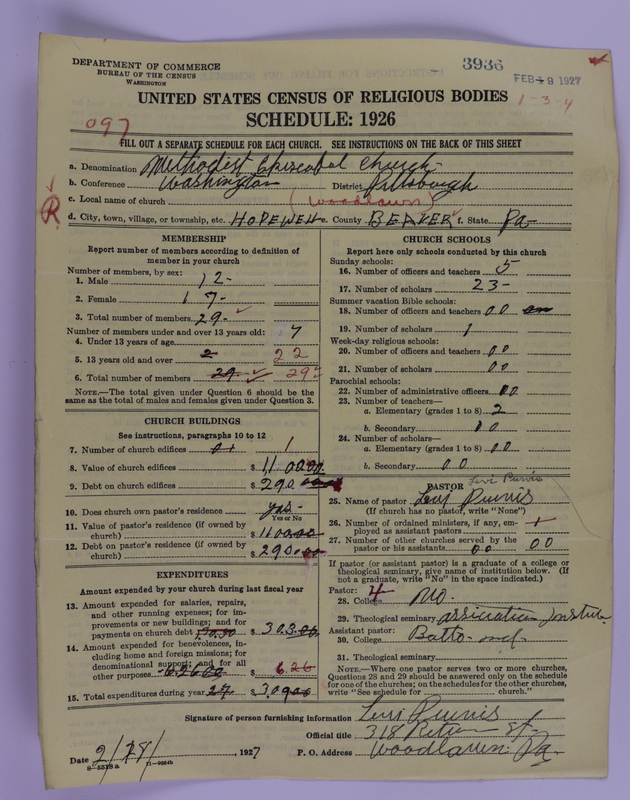 DEPARTMENT OF COMMERCE
BUREAU OF THE CENSUS
WASHINGTON
3936
FEB 19 1927
1-3-4
UNITED STATES CENSUS OF RELIGIOUS BODIES
SCHEDULE: 1926
097
FILL OUT A SEPARATE SCHEDULE FOR EACH CHURCH. SEE INSTRUCTIONS ON THE BACK OF THIS SHEET
a. Denomination Methodist Episcopal Church
b. Conference Washington District Pittsbough
c. Local name of church (Woodlawn)
R
d. City, town, village, or township, etc. HOPEWELL e. County BEAVER f. State Pa
MEMBERSHIP
Report number of members according to definition of
member in your church
Number of members, by sex:
1. Male 12-
2. Female 17-
3. Total number of members 29-
Number of members under and over 13 years old:
4. Under 13 years of age 7
5. 13 years old and over 2 22
6. Total number of members 29 29
NOTE.—The total given under Question 6 should be
same as the total of males and females given under Question 3.
CHURCH BUILDINGS
See instructions, paragraphs 10 to 12
7. Number of church edifices 01 1
8. Value of church edifices $ 1100.00
9. Debt on church edifices $ 290
10. Does church own pastor's residence yas-
Yes or No
11. Value of pastor's residence (if owned by
church) $ 1100.00
12. Debt on pastor's residence (if owned by
church) $ 290.00
EXPENDITURES
Amount expended by your church during last fiscal year
13. Amount expended for salaries, repairs,
and other running expenses; for im-
provements or new buildings; and for
payments on church debt $ 303.00
14. Amount expended for benevolences, in-
cluding home and foreign missions; for
denominational support; and for all
other purposes $ 626
15. Total expenditures during year 29. $ 309
CHURCH SCHOOLS
Report here only schools conducted by this church
Sunday schools:
16. Number of officers and teachers 5
17. Number of scholars 23-
Summer vacation Bible schools:
18. Number of officers and teachers 00
19. Number of scholars 1
Week-day religious schools:
20. Number of officers and teachers 00
21. Number of scholars 00
Parochial schools:
22. Number of administrative officers 00
23. Number of teachers—
a. Elementary (grades 1 to 8) 2
b. Secondary 00
24. Number of scholars—
a. Elementary (grades 1 to 8) 00
b. Secondary 00
PASTOR
Levi Purvis
25. Name of pastor Levi Purvis
(If church has no pastor, write "None")
26. Number of ordained ministers, if any, em-
ployed as assistant pastors 1
27. Number of other churches served by the
pastor or his assistants 00 00
If pastor (or assistant pastor) is a graduate of a college or
theological seminary, give name of institution below. (If
not a graduate, write "No" in the space indicated.)
Pastor:
28. College no.
29. Theological seminary
Assistant pastor:
30. College
31. Theological seminary
NOTE.—Where one pastor serves two or more churches,
Questions 28 and 29 should be answered only on the schedule
for one of the churches; on the schedules for the other churches,
write "See schedule for church."
Signature of person furnishing information Levi Purvis
Official title 318 Return St.
Date 2/28/, 1927 P. O. Address Woodlawn. Pa.
8—5518a 11—9054b